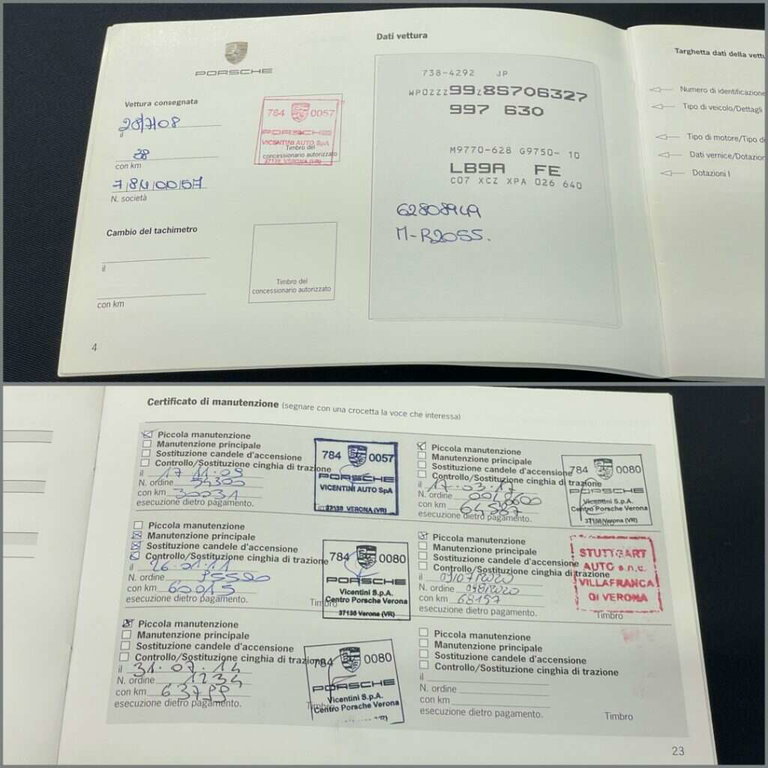 PORSCHE
Vettura consegnata
28/7/08
28
con km
7/84/00/57
N. società
784 0057
PORSCHE
VICENTINI AUTO SpA
Timbro del
concessionario autorizzato
37138 VERONA (VR)
Cambio del tachimetro
il
con km
Timbro del
concessionario autorizzato
4
Dati vettura
738-4292 JP
WP0ZZZ99Z8S706327
997 630
M9770-628 G9750- 10
LB9A FE
C07 XCZ XPA 026 640
62808949
M-R2055.
Targhetta dati della vettu
Numero di identificazione
Tipo di veicolo/Dettagli
Tipo di motore/Tipo d
Dati vernice/Dotazion
Dotazioni I
Certificato di manutenzione (segnare con una crocetta la voce che interessa)
Piccola manutenzione
Manutenzione principale
Sostituzione candele d'accensione
Controllo/Sostituzione cinghia di trazione
il 17.11.09
N. ordine
con km 30031
esecuzione dietro pagamento.
784 0057
PORSCHE
VICENTINI AUTO SpA
37138 VERONA (VR)
Piccola manutenzione
Manutenzione principale
Sostituzione candele d'accensione
Controllo/Sostituzione cinghia di trazione
il 26.01.11
N. ordine
con km 60015
esecuzione dietro pagamento.
784 0080
PORSCHE
Vicentini S.p.A.
Centro Porsche Verona
37138 Verona (VR)
Piccola manutenzione
Manutenzione principale
Sostituzione candele d'accensione
Controllo/Sostituzione cinghia di trazione
il 31.07.14
N. ordine 1234
con km 63788
esecuzione dietro pagamento.
784 0080
PORSCHE
Vicentini S.p.A.
Centro Porsche Verona
Piccola manutenzione
Manutenzione principale
Sostituzione candele d'accensione
Controllo/Sostituzione cinghia di trazione
il 17.03.17
N. ordine
con km 64587
esecuzione dietro pagamento.
784 0080
PORSCHE
Vicentini S.p.A.
Centro Porsche Verona
37138 Verona (VR)
Piccola manutenzione
Manutenzione principale
Sostituzione candele d'accensione
Controllo/Sostituzione cinghia di trazione
il 09/07/2020
N. ordine
con km 68157
esecuzione dietro pagamento.
STUTTGART
AUTO s.n.c.
VILLAFRANCA
DI VERONA
Timbro
Piccola manutenzione
Manutenzione principale
Sostituzione candele d'accensione
Controllo/Sostituzione cinghia di trazione
il
N. ordine
con km
esecuzione dietro pagamento.
Timbro
23